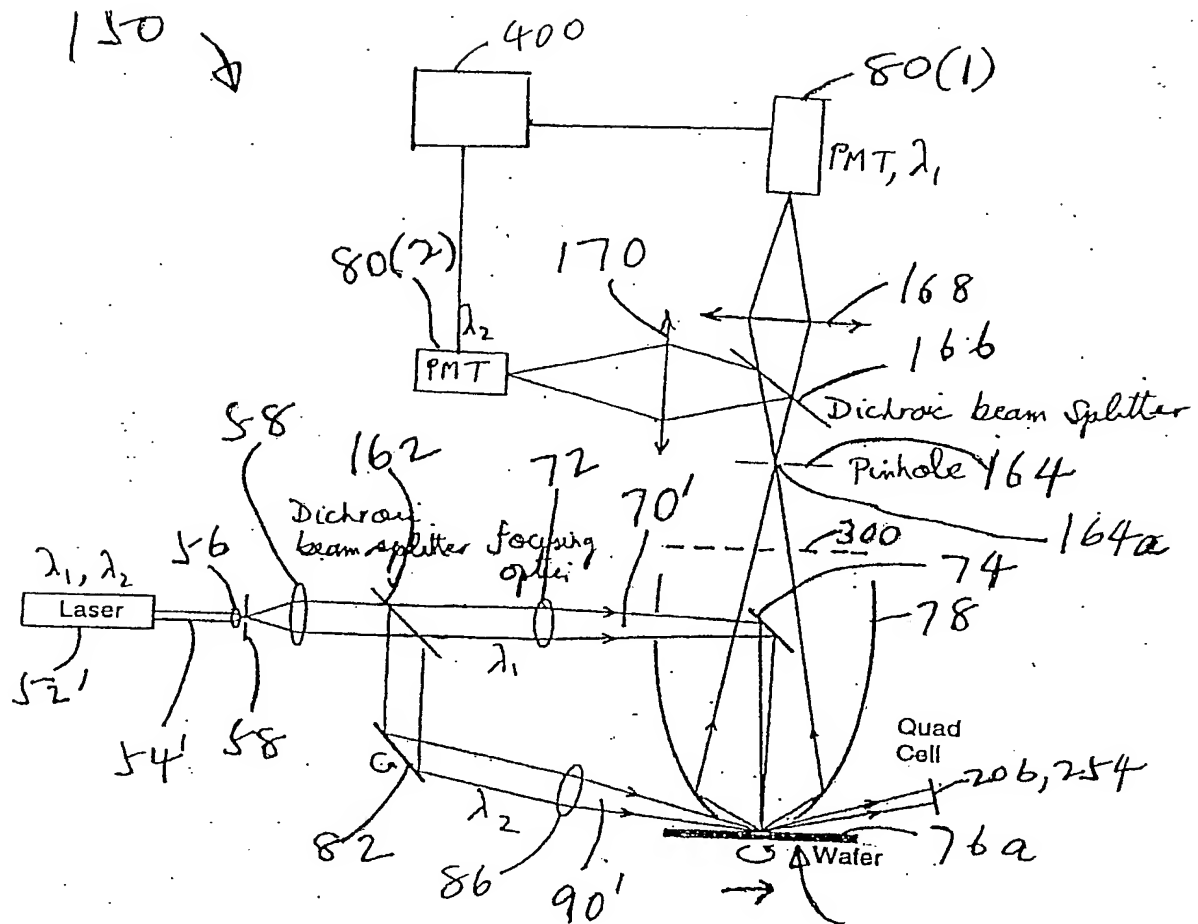 150
400
80(1)
PMT, λ1
80(2)
λ2
PMT
170
168
166
Dichroic beam splitter
Pinhole 164
164a
58
162
72
70'
300
74
78
Dichroic
beam splitter
focusing
optics
56
λ1, λ2
Laser
λ1
52'
54'
58
Quad
Cell
206, 254
λ2
82
86
90'
Wafer
76a